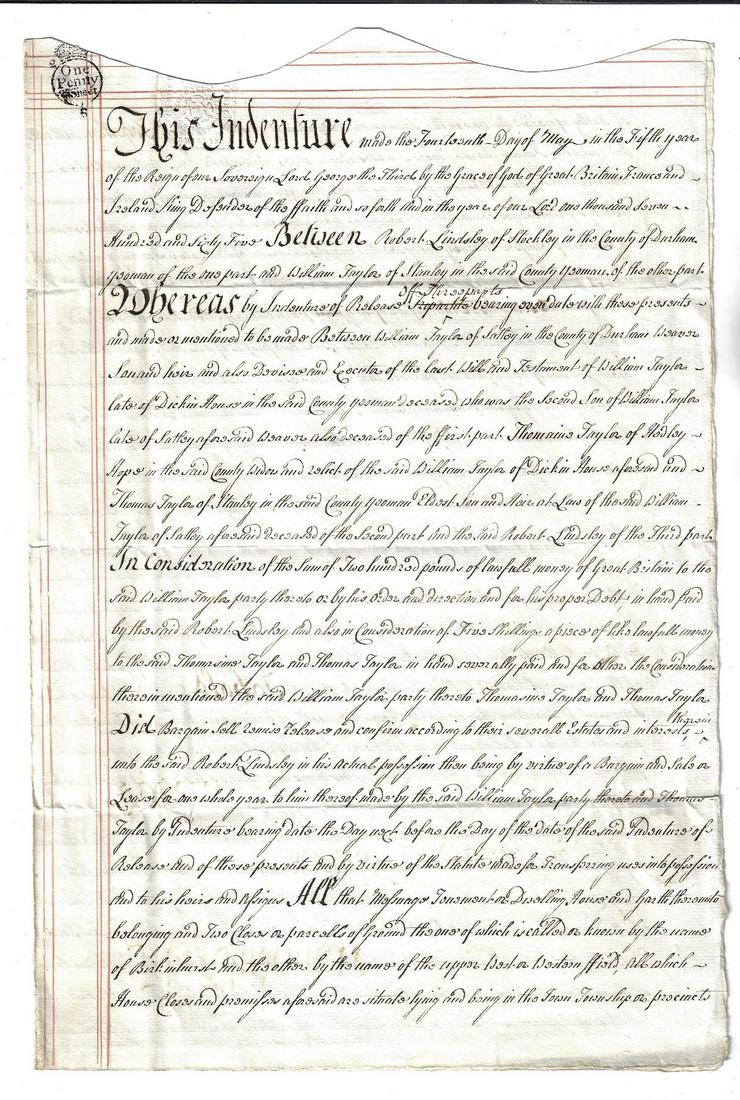 One
Penny
Sheet
This Indenture made the Fourteenth Day of May in the Fifth year
of the Reign of our Sovereign Lord George the Third by the Grace of God of Great Britain France and
Ireland King Defender of the ffaith and so forth And in the year of our Lord one thousand Seven
Hundred and Sixty Five Between Robert Lindsley of Stockley in the County of Durham
yeoman of the one part and William Taylor of Stanley in the said County yeoman of the other part
of Threeparts
Whereas by Indenture of Release Tripartite bearing even date with these presents
and made or mentioned to be made Between William Taylor of Sattey in the County of Durham Weaver
Son and heir and also Devisee and Executor of the Last Will and Testament of William Taylor
late of Dickin House in the said County yeoman deceased who was the Second Son of William Taylor
late of Sattey aforesaid Weaver also deceased of the ffirst part Thomasine Taylor of Hedley
Hope in the said County Widow and relict of the said William Taylor of Dickin House aforesaid and
Thomas Taylor of Stanley in the said County yeoman Eldest Son and Heir at Law of the said William
Taylor of Sattey aforesaid deceased of the Second part and the said Robert Lindsley of the Third part
In Consideration of the Sum of Two hundred pounds of lawfull money of Great Britain to the
said William Taylor party thereto or by his Order and direction and for his proper Debt in hand paid
by the said Robert Lindsley and also in Consideration of Five Shillings a piece of like lawfull money
to the said Thomasine Taylor and Thomas Taylor in hand severally paid and for other the Considerations
therein mentioned the said William Taylor party thereto Thomasine Taylor and Thomas Taylor
therein
Did Bargain Sell Remise Release and confirm according to their severall Estates and interests
unto the said Robert Lindsley in his actual possession then being by virtue of a Bargain and Sale or
Lease for one whole year to him thereof made by the said William Taylor party thereto and Thomas
Taylor by Indenture bearing date the Day next before the Day of the date of the said Indenture of
Release and of these presents and by virtue of the Statute made for Transferring uses into possession
and to his heirs and assigns All that Messuage Tenement or Dwelling House and Garth thereunto
belonging and Two Closes or parcells of Ground the one of which is called or known by the name
of Birkinhurst and the other by the name of the upper West or Western ffield all which
House Closes and premisses aforesaid are situate lying and being in the Town Township or precincts